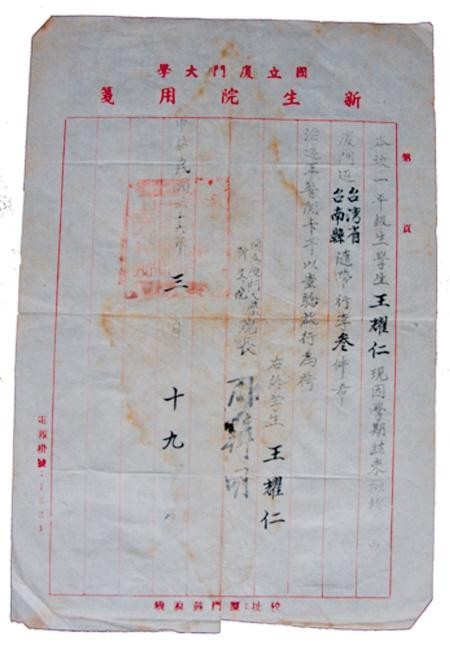 國立廈門大學
新生院用箋
第 頁
本校一年級生學生王耀仁現因學期結束
廈門返台灣省台南縣隨帶行李叁件希
沿途軍警關卡予以查驗放行為荷
右給學生 王耀仁
院長 周辨明
中華民國三十六年三月十九日
電報掛號
校址：廈門